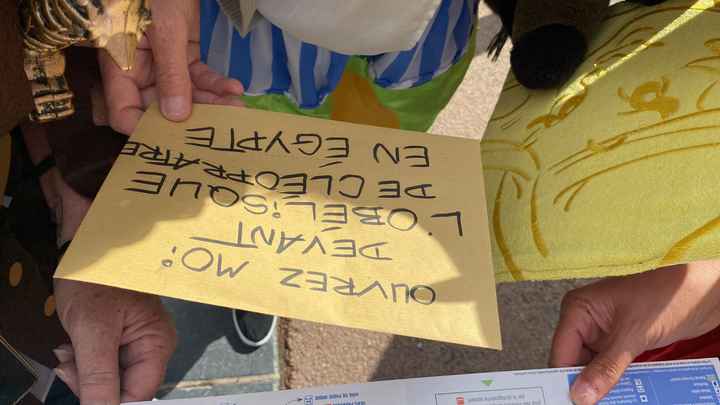 OUVREZ MOi
DEVANT
L'OBELiSQUE
DE CLEOPATRE
EN ÉGYPTE